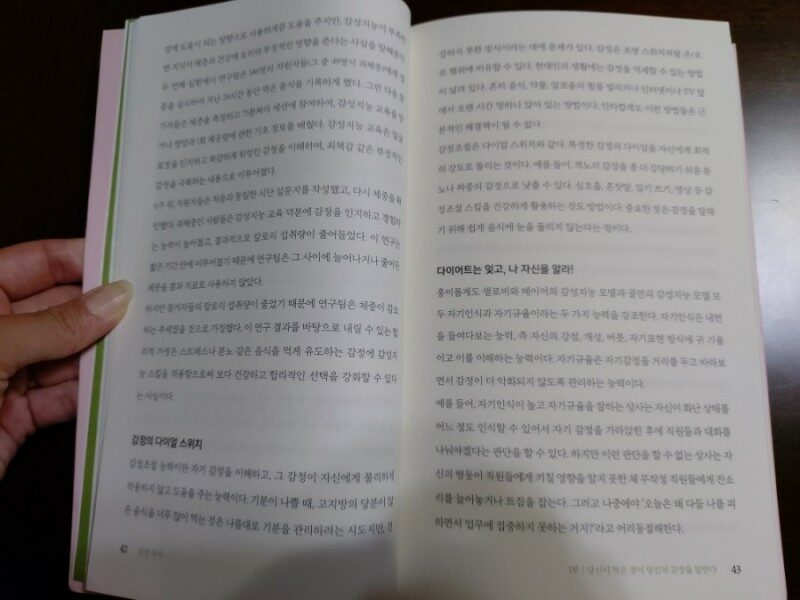 강에 도움이 되는 방향으로 사용하게끔 도움을 주지만, 감성지능이 부족하
면 지식이 체중과 건강에 오히려 부정적인 영향을 준다는 사실을 말해준다.
두 번째 실험에서 연구팀은 140명의 자원자들(그 중 49명이 과체중)에게 설
문을 실시하여 지난 24시간 동안 먹은 음식을 기록하게 했다. 그런 다음 참
가자들은 체중을 측정하고 75분짜리 세션에 참여하여, 감성지능 교육을 받
거나 영양과 1회 제공량에 관한 기초 정보를 배웠다. 감성지능 교육은 얼굴
표정을 인지하고 복잡하게 뒤엉킨 감정을 이해하며, 죄책감 같은 부정적인
감정을 극복하는 내용으로 이루어졌다.
주 뒤, 자원자들은 처음과 동일한 식단 설문지를 작성했고, 다시 체중을 확
인했다. 과체중인 사람들은 감성지능 교육 덕분에 감정을 인지하고 경험하
는 능력이 높아졌고, 결과적으로 칼로리 섭취량이 줄어들었다. 이 연구는
짧은 기간 안에 이루어졌기 때문에 연구팀은 그 사이에 늘어나거나 줄어든
체중을 결과 지표로 사용하지 않았다.
하지만 참가자들의 칼로리 섭취량이 줄었기 때문에 연구팀은 체중이 감소
하는 추세였을 것으로 가정했다. 이 연구 결과를 바탕으로 내릴 수 있는 합
리적 가정은 스트레스나 분노 같은 음식을 먹게 유도하는 감정에 감성지
능 스킬을 적용함으로써 보다 건강하고 합리적인 선택을 강화할 수 있다
는 사실이다.
감정의 다이얼 스위치
감정조절 능력이란 자기 감정을 이해하고, 그 감정이 자신에게 불리하게
작용하지 않고 도움을 주는 능력이다. 기분이 나쁠 때, 고지방의 당분이 많
은 음식을 너무 많이 먹는 것은 나름대로 기분을 관리하려는 시도지만, 건
42
감정 식사
강하지 못한 방식이라는 데에 문제가 있다. 감정은 조명 스위치처럼 온/오
프 행위에 비유할 수 있다. 현대인의 생활에는 감정을 억제할 수 있는 방법
이 널려 있다. 흔히 음식, 약물, 알코올의 힘을 빌리거나 인터넷이나 TV 앞
에서 오랜 시간 멍하니 앉아 있는 방법이다. 안타깝게도 이런 방법들은 근
본적인 해결책이 될 수 없다.
감정조절은 다이얼 스위치와 같다. 특정한 감정의 다이얼을 자신에게 최적
의 강도로 돌리는 것이다. 예를 들어, 격노의 감정을 좀 더 감당하기 쉬운 분
노나 짜증의 감정으로 낮출 수 있다. 심호흡, 혼잣말, 일기 쓰기, 명상 등 감
정조절 스킬을 건강하게 활용하는 것도 방법이다. 중요한 것은 감정을 달래
기 위해 쉽게 음식에 눈을 돌리지 않는다는 점이다.
다이어트는 잊고, 나 자신을 알라!
흥미롭게도 샐로비와 메이어의 감성지능 모델과 골먼의 감성지능 모델 모
두 자기인식과 자기규율이라는 두 가지 능력을 강조한다. 자기인식은 내면
을 들여다보는 능력, 즉 자신의 강점, 개성, 버릇, 자기표현 방식에 귀 기울
이고 이를 이해하는 능력이다. 자기규율은 자기감정을 거리를 두고 바라보
면서 감정이 더 악화되지 않도록 관리하는 능력이다.
예를 들어, 자기인식이 높고 자기규율을 잘하는 상사는 자신이 화난 상태를
어느 정도 인식할 수 있어서 자기 감정을 가라앉힌 후에 직원들과 대화를
나눠야겠다는 판단을 할 수 있다. 하지만 이런 판단을 할 수 없는 상사는 자
신의 행동이 직원들에게 끼칠 영향을 알지 못한 채 무작정 직원들에게 잔소
리를 늘어놓거나 트집을 잡는다. 그러고 나중에야 '오늘은 왜 다들 나를 피
하면서 업무에 집중하지 못하는 거지?'라고 어리둥절해한다.
1부 | 당신이 먹은 것이 당신의 감정을 말한다
43